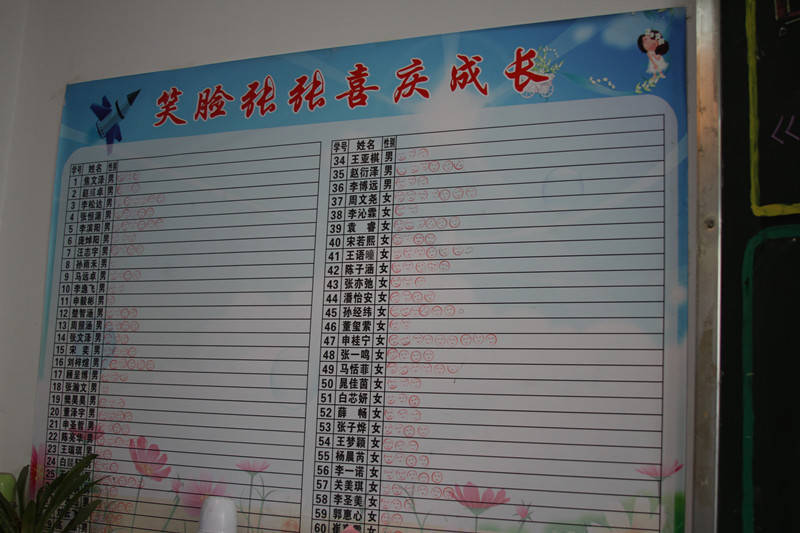 笑脸张张喜庆成长
学号 姓名 性别
1 焦文泽 男
2 赵征卓 男
3 李松达 男
4 张恒通 男
5 李滨阳 男
6 庞焯阳 男
7 汪志宇 男
8 孙雨禾 男
9 马远卓 男
10 李逸飞 男
11 申毅彬 男
12 楚智涵 男
13 周朋涵 男
14 张文泽 男
15 宋奕 男
16 刘梓煊 男
17 顾呈博 男
18 张瀚文 男
19 樊昊昊 男
20 董泽宇 男
21 申圣哲 男
22 陈英华
23 王瑞琪
24 白
25
学号 姓名 性别
34 王亚棋 男
35 赵衍泽 男
36 李博远 男
37 周文尧 女
38 李沁霖 女
39 袁睿 女
40 宋若熙 女
41 王语曈 女
42 陈子涵 女
43 张亦弛 女
44 潘怡安 女
45 孙经纬 女
46 董玺萦 女
47 申桂宁 女
48 张一鸣 女
49 马恬菲 女
50 晁佳茵 女
51 白芯妍 女
52 薛畅 女
53 张子烨 女
54 王梦颖 女
55 杨晨芮 女
56 李一诺 女
57 关美琪 女
58 李圣美 女
59 郭惠心 女
60 女